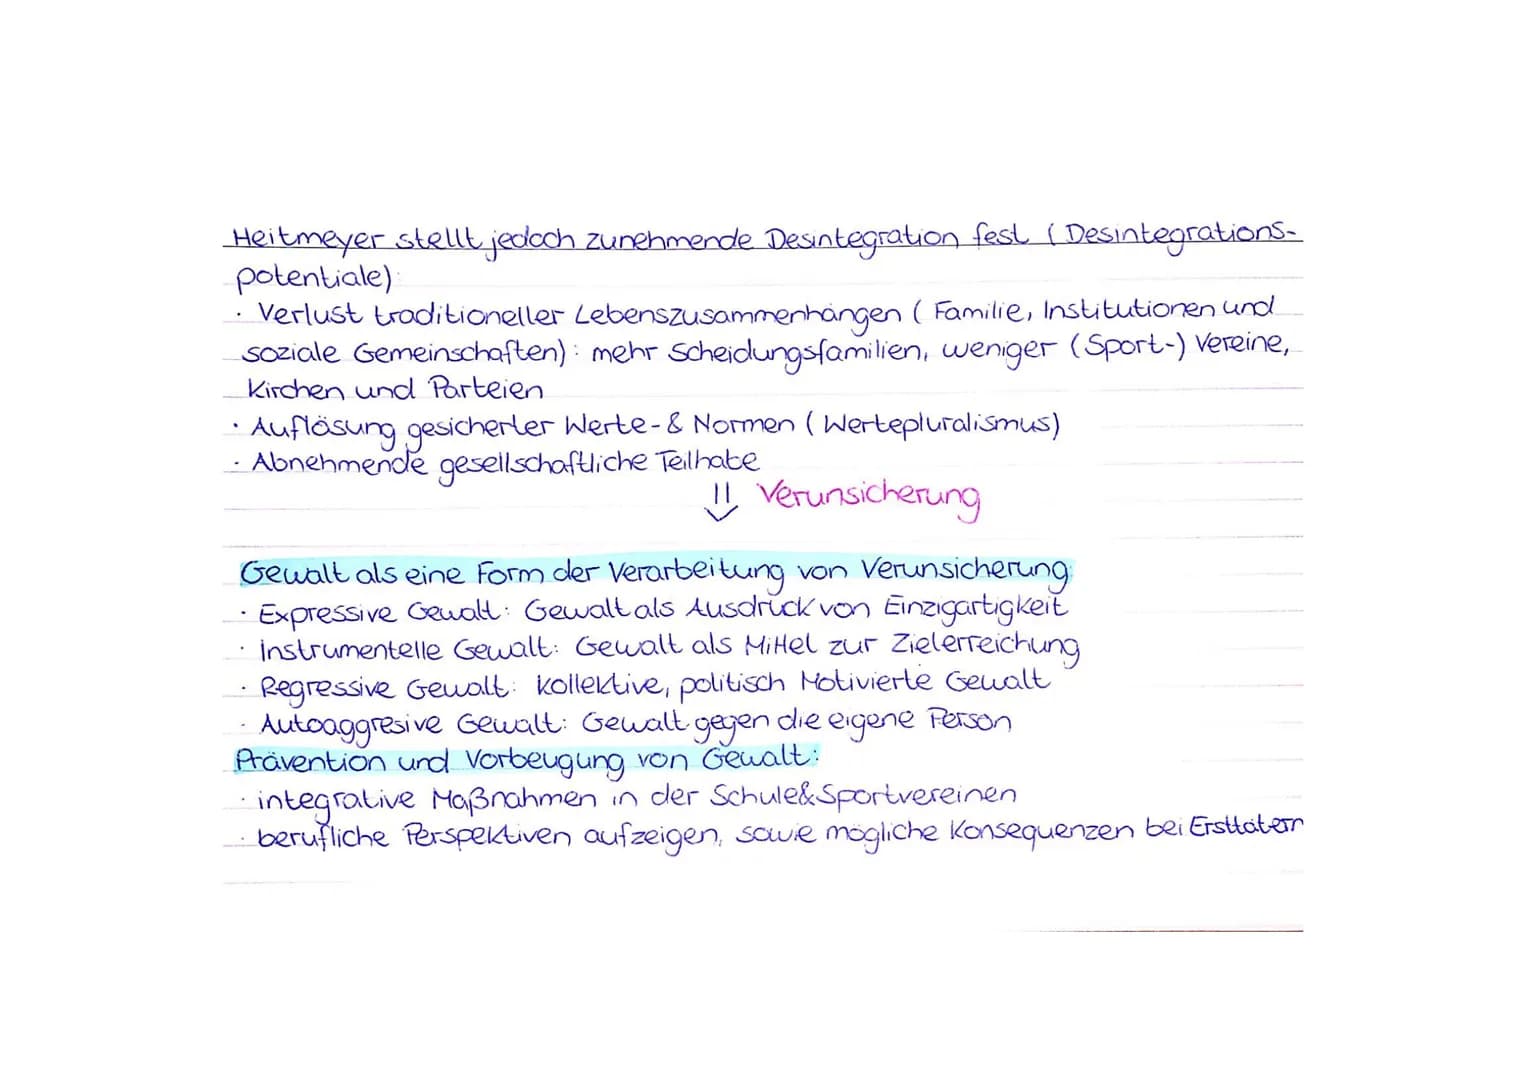 Heitmeyer stellt jedoch zunehmende Desintegration fest (Desintegrations-
potentiale):
· Verlust traditioneller Lebenszusammenhängen (Familie, Institutionen und
soziale Gemeinschaften): mehr Scheidungsfamilien, weniger (Sport-) Vereine,
Kirchen und Parteien
· Auflösung gesicherter Werte- & Normen (Wertepluralismus)
· Abnehmende gesellschaftliche Teilhabe
⇓ Verunsicherung
Gewalt als eine Form der Verarbeitung von Verunsicherung:
· Expressive Gewalt: Gewalt als Ausdruck von Einzigartigkeit
· instrumentelle Gewalt: Gewalt als Mittel zur Zielerreichung
· Regressive Gewalt: kollektive, politisch Motivierte Gewalt
· Autoaggresive Gewalt: Gewalt gegen die eigene Person
Prävention und Vorbeugung von Gewalt:
· integrative Maßnahmen in der Schule&Sportvereinen
· berufliche Perspektiven aufzeigen, sowie mögliche Konsequenzen bei Ersttätern